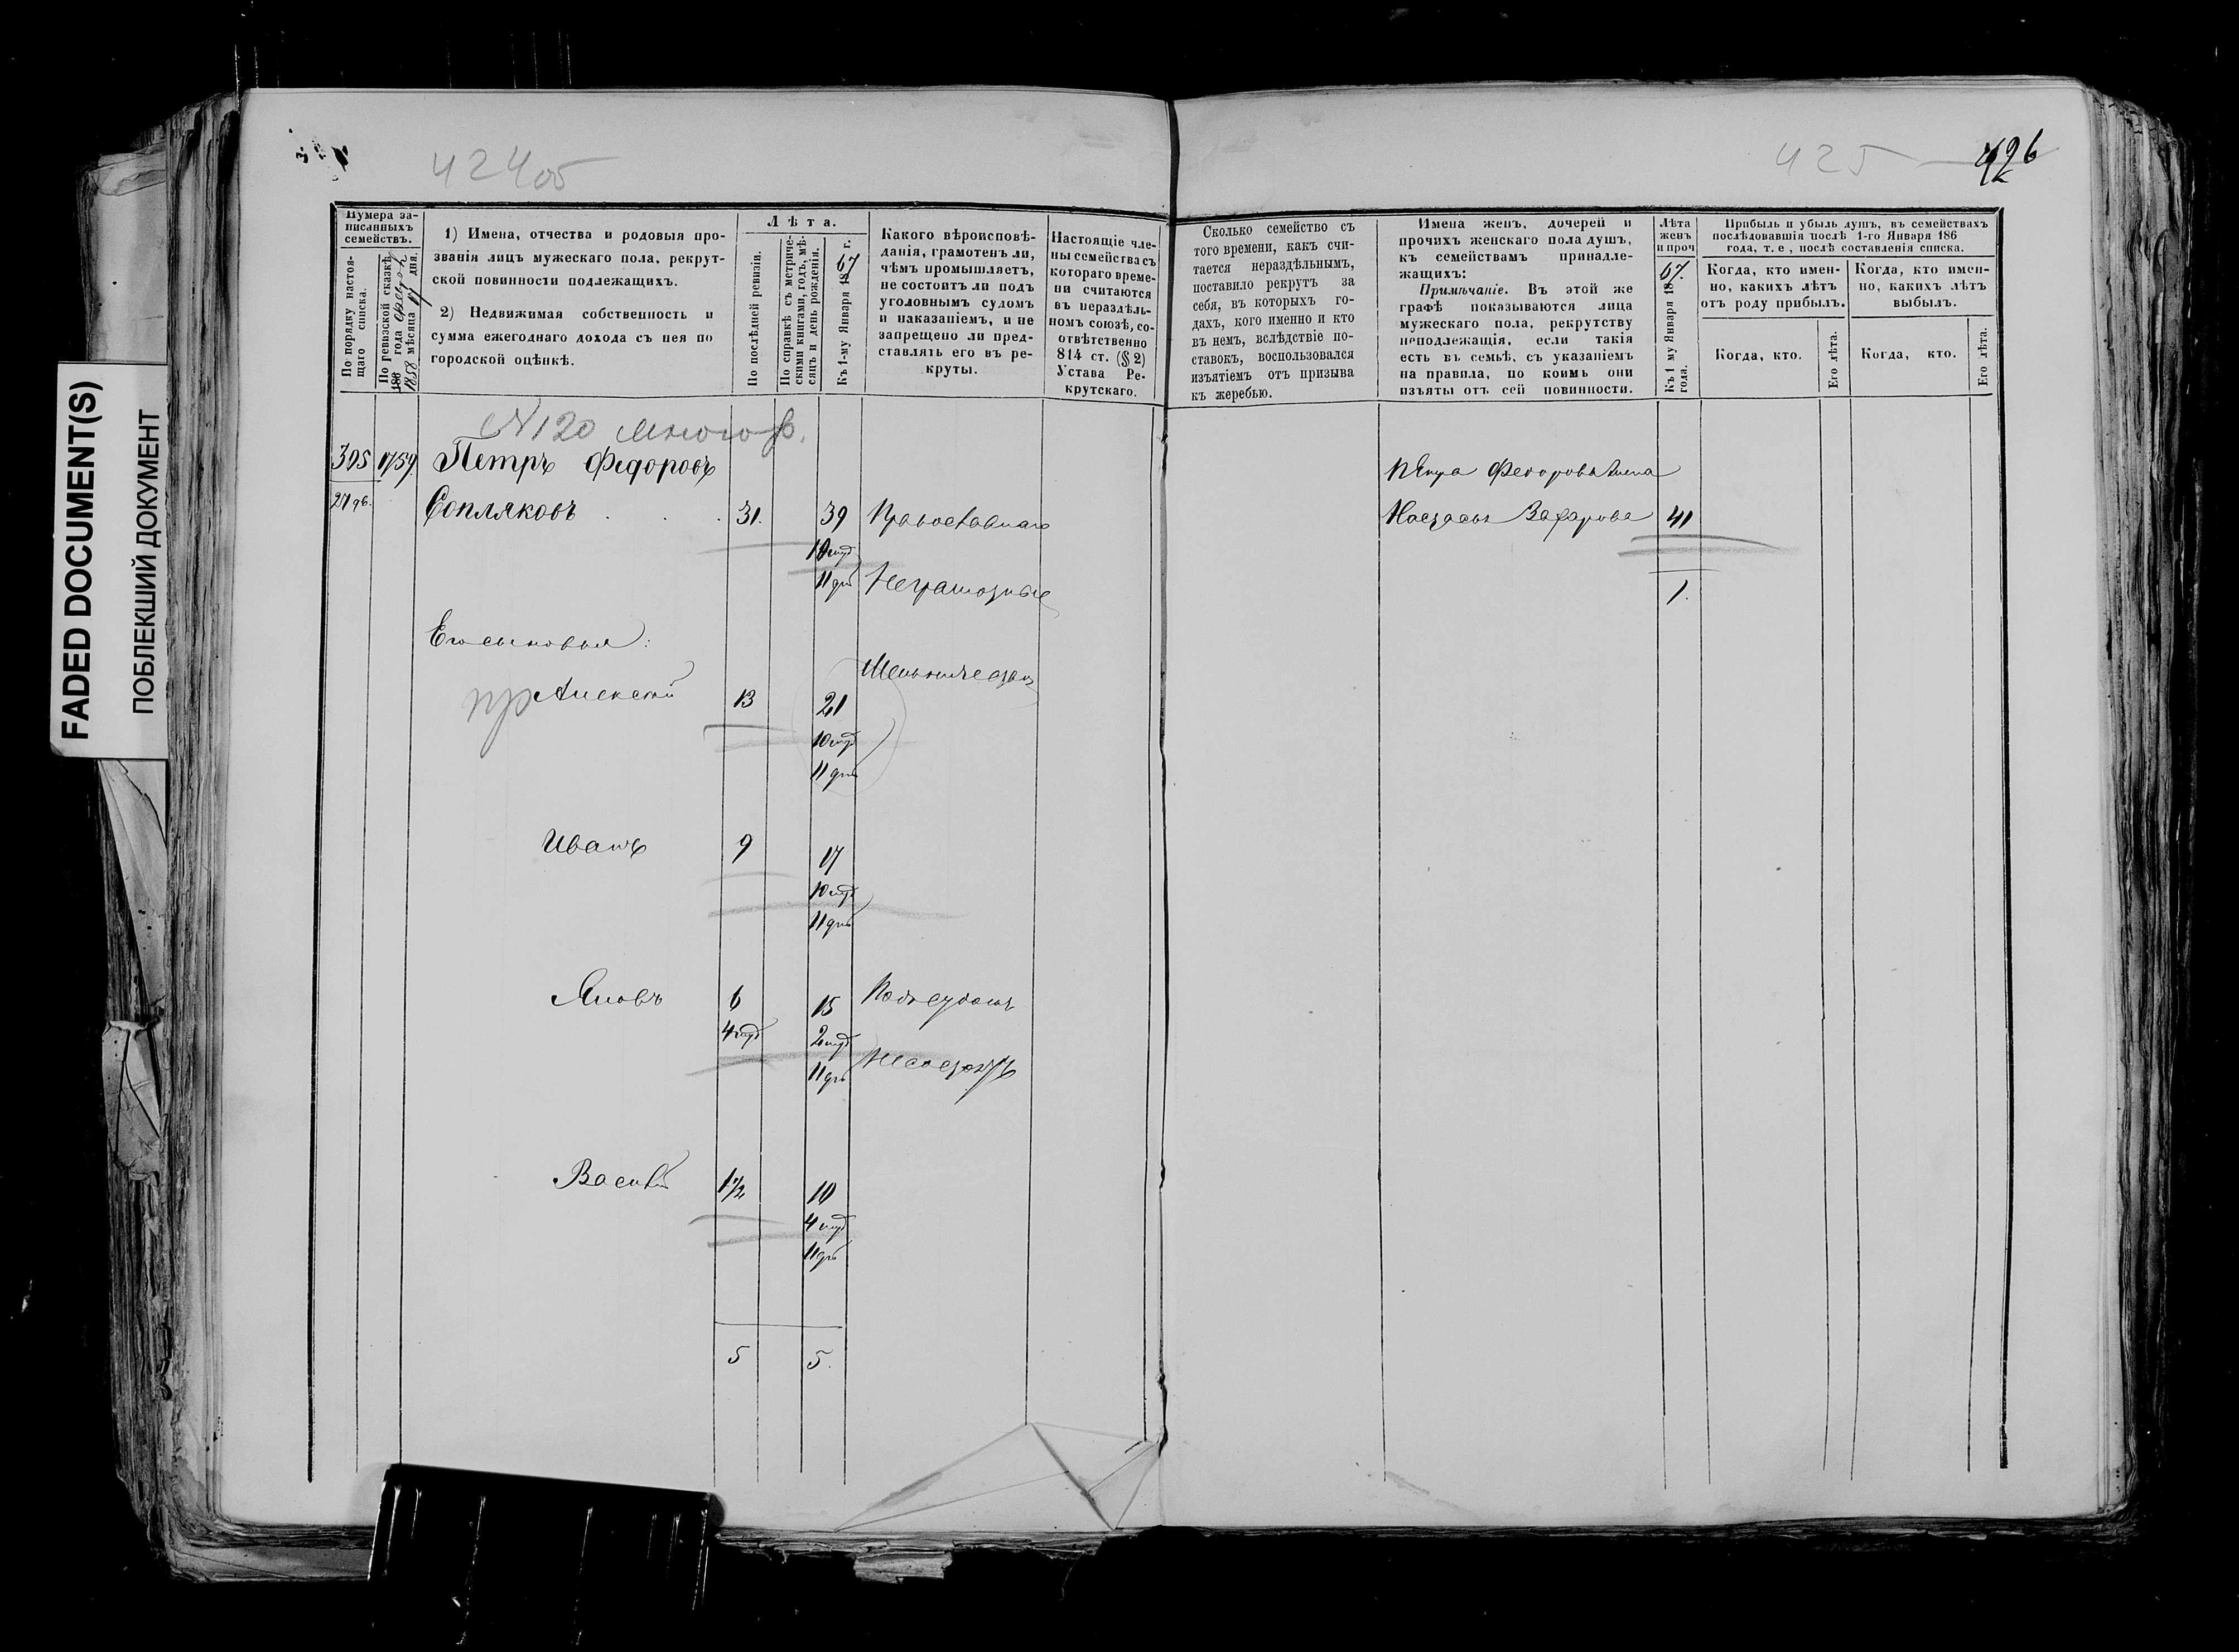 FADED DOCUMENT(S)
ПОБЛЕКШИЙ ДОКУМЕНТ
424об
Нумера за-
писанныхъ
семействъ.
По порядку настоя-
щаго списка.
По ревизской сказкѣ
186 года
1858 мѣсяца 17 дня.
1) Имена, отчества и родовыя про-
званія лицъ мужескаго пола, рекрут-
ской повинности подлежащихъ.
2) Недвижимая собственность и
сумма ежегоднаго дохода съ нея по
городской оцѣнкѣ.
Лѣта.
По послѣдней ревизіи.
По справкѣ съ метриче-
скими книгами, годъ, мѣ-
сяцъ и день рожденія.
Къ 1-му Января 1867 г.
Какого вѣроисповѣ-
данія, грамотенъ ли,
чѣмъ промышляетъ,
не состоитъ ли подъ
уголовнымъ судомъ
и наказаніемъ, и не
запрещено ли пред-
ставлять его въ ре-
круты.
Настоящіе чле-
ны семейства съ
котораго време-
ни считаются
въ нераздѣль-
номъ союзѣ, со-
отвѣтственно
814 ст. (§ 2)
Устава Ре-
крутскаго.
N 120
395 1759 Петръ Федоровъ
27 дв. Сопляковъ 31. 39 Православнаго
10 мѣс
11 дн Неграмотные
Его сыновья:
пр Алексей 13 21
10 мѣс
11 дн
Иванъ 9 17
10 мѣс
11 дн
Яковъ 6 15 Подъ судомъ
4 мѣс 2 мѣс
11 дн не состоятъ
Василій 1 1/2 10
4 мѣс
11 дн
5 5.
425 426
Сколько семейство съ
того времени, какъ счи-
тается нераздѣльнымъ,
поставило рекрутъ за
себя, въ которыхъ го-
дахъ, кого именно и кто
въ немъ, вслѣдствіе по-
ставокъ, воспользовался
изъятіемъ отъ призыва
къ жеребью.
Имена женъ, дочерей и
прочихъ женскаго пола душъ,
къ семействамъ принадле-
жащихъ:
Примѣчаніе. Въ этой же
графѣ показываются лица
мужескаго пола, рекрутству
неподлежащія, если такія
есть въ семьѣ, съ указаніемъ
на правила, по коимъ они
изъяты отъ сей повинности.
Лѣта
женъ
и проч
Къ 1 му Января 1867.
года.
Прибыль и убыль душъ, въ семействахъ
послѣдовавшія послѣ 1-го Января 186
года, т. е., послѣ составленія списка.
Когда, кто имен-
но, какихъ лѣтъ
отъ роду прибылъ.
Когда, кто имен-
но, какихъ лѣтъ
выбылъ.
Когда, кто.
Его лѣта.
Когда, кто.
Его лѣта.
Петра Федорова жена
Настасья Захарова 41
1.